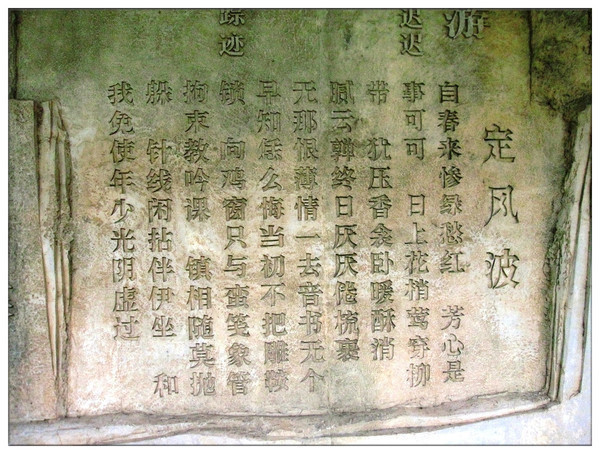 游
迟迟
踪迹
定风波
自春来惨绿愁红 芳心是
事可可 日上花梢莺穿柳
带 犹压香衾卧暖酥消
腻云亸终日厌厌倦梳裹
无那恨薄情一去音书无个
早知恁么悔当初不把雕鞍
锁 向鸡窗只与蛮笺象管
拘束教吟课 镇相随莫抛
躲 针线闲拈伴伊坐 和
我免使年少光阴虚过